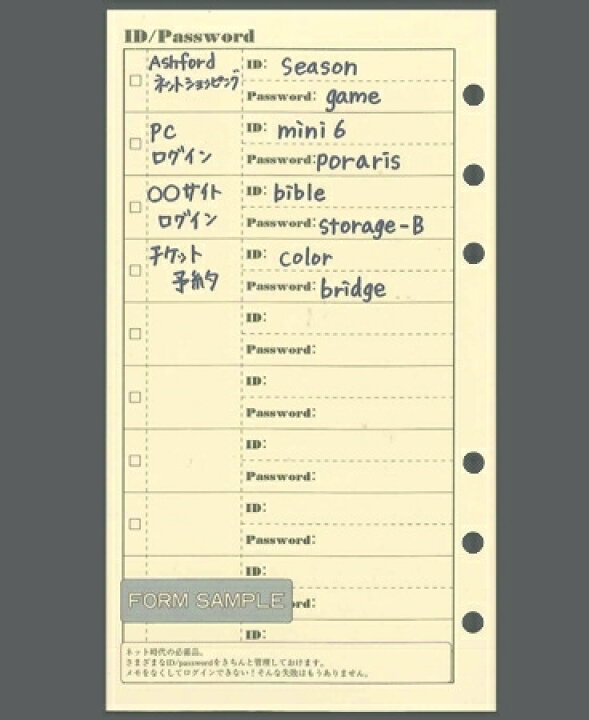 ID/Password
Ashford
ネットショッピング
ID: Season
Password: game
PC
ログイン
ID: mini 6
Password: poraris
〇〇サイト
ログイン
ID: bible
Password: storage-B
チケット
予約
ID: color
Password: bridge
ID:
Password:
ID:
Password:
ID:
Password:
ID:
Password:
ID:
FORM SAMPLE
ord:
ID:
ネット時代の必需品。
さまざまなID/passwordをきちんと管理しておけます。
メモをなくしてログインできない!そんな失敗はもうありません。